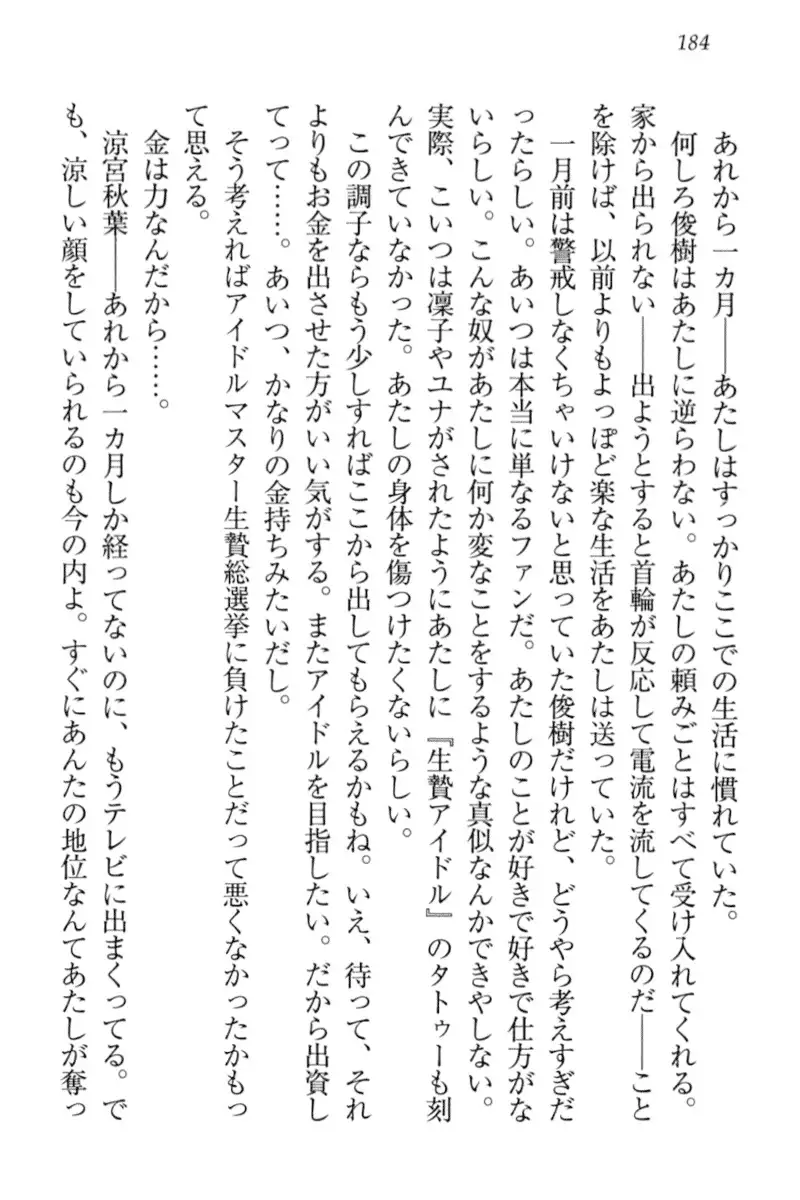 184
あれから一カ月――あたしはすっかりここでの生活に慣れていた。
何しろ俊樹はあたしに逆らわない。あたしの頼みごとはすべて受け入れてくれる。
家から出られない――出ようとすると首輪が反応して電流を流してくるのだ――こと
を除けば、以前よりもよっぽど楽な生活をあたしは送っていた。
一月前は警戒しなくちゃいけないと思っていた俊樹だけれど、どうやら考えすぎだ
ったらしい。あいつは本当に単なるファンだ。あたしのことが好きで好きで仕方がな
いらしい。こんな奴があたしに何か変なことをするような真似なんかできやしない。
実際、こいつは凜子やユナがされたようにあたしに『生贄アイドル』のタトゥーも刻
んできていなかった。あたしの身体を傷つけたくないらしい。
この調子ならもう少しすればここから出してもらえるかもね。いえ、待って、それ
よりもお金を出させた方がいい気がする。またアイドルを目指したい。だから出資し
てって……。あいつ、かなりの金持ちみたいだし。
そう考えればアイドルマスター生贄総選挙に負けたことだって悪くなかったかもっ
て思える。
金は力なんだから……。
涼宮秋葉――あれから一カ月しか経ってないのに、もうテレビに出まくってる。で
も、涼しい顔をしていられるのも今の内よ。すぐにあんたの地位なんてあたしが奪っ